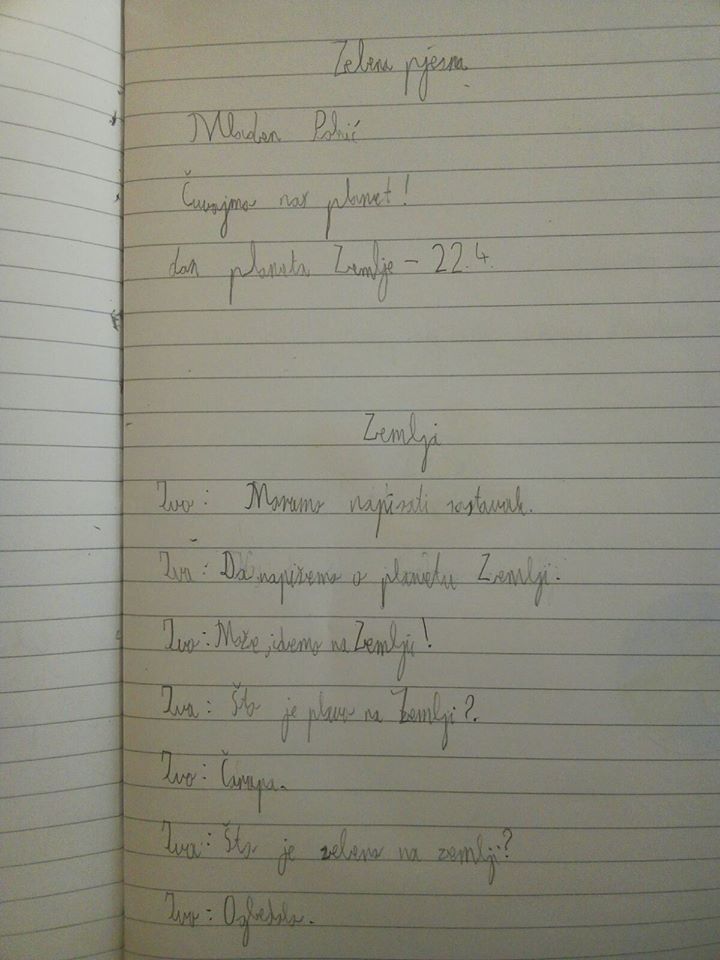 Zelena pjesna
Mladen
Čuvajmo naš planet!
dan planeta Zemlje - 22.4.
Zemlja
Ivo: Moramo napisati sastavak.
Iva: Da napišemo o planetu Zemlji.
Ivo: Može, idemo na Zemlju!
Iva: Što je plavo na Zemlji?.
Ivo: Čarapa.
Iva: Što je zeleno na zemlji?
Ivo: Ogledalo.